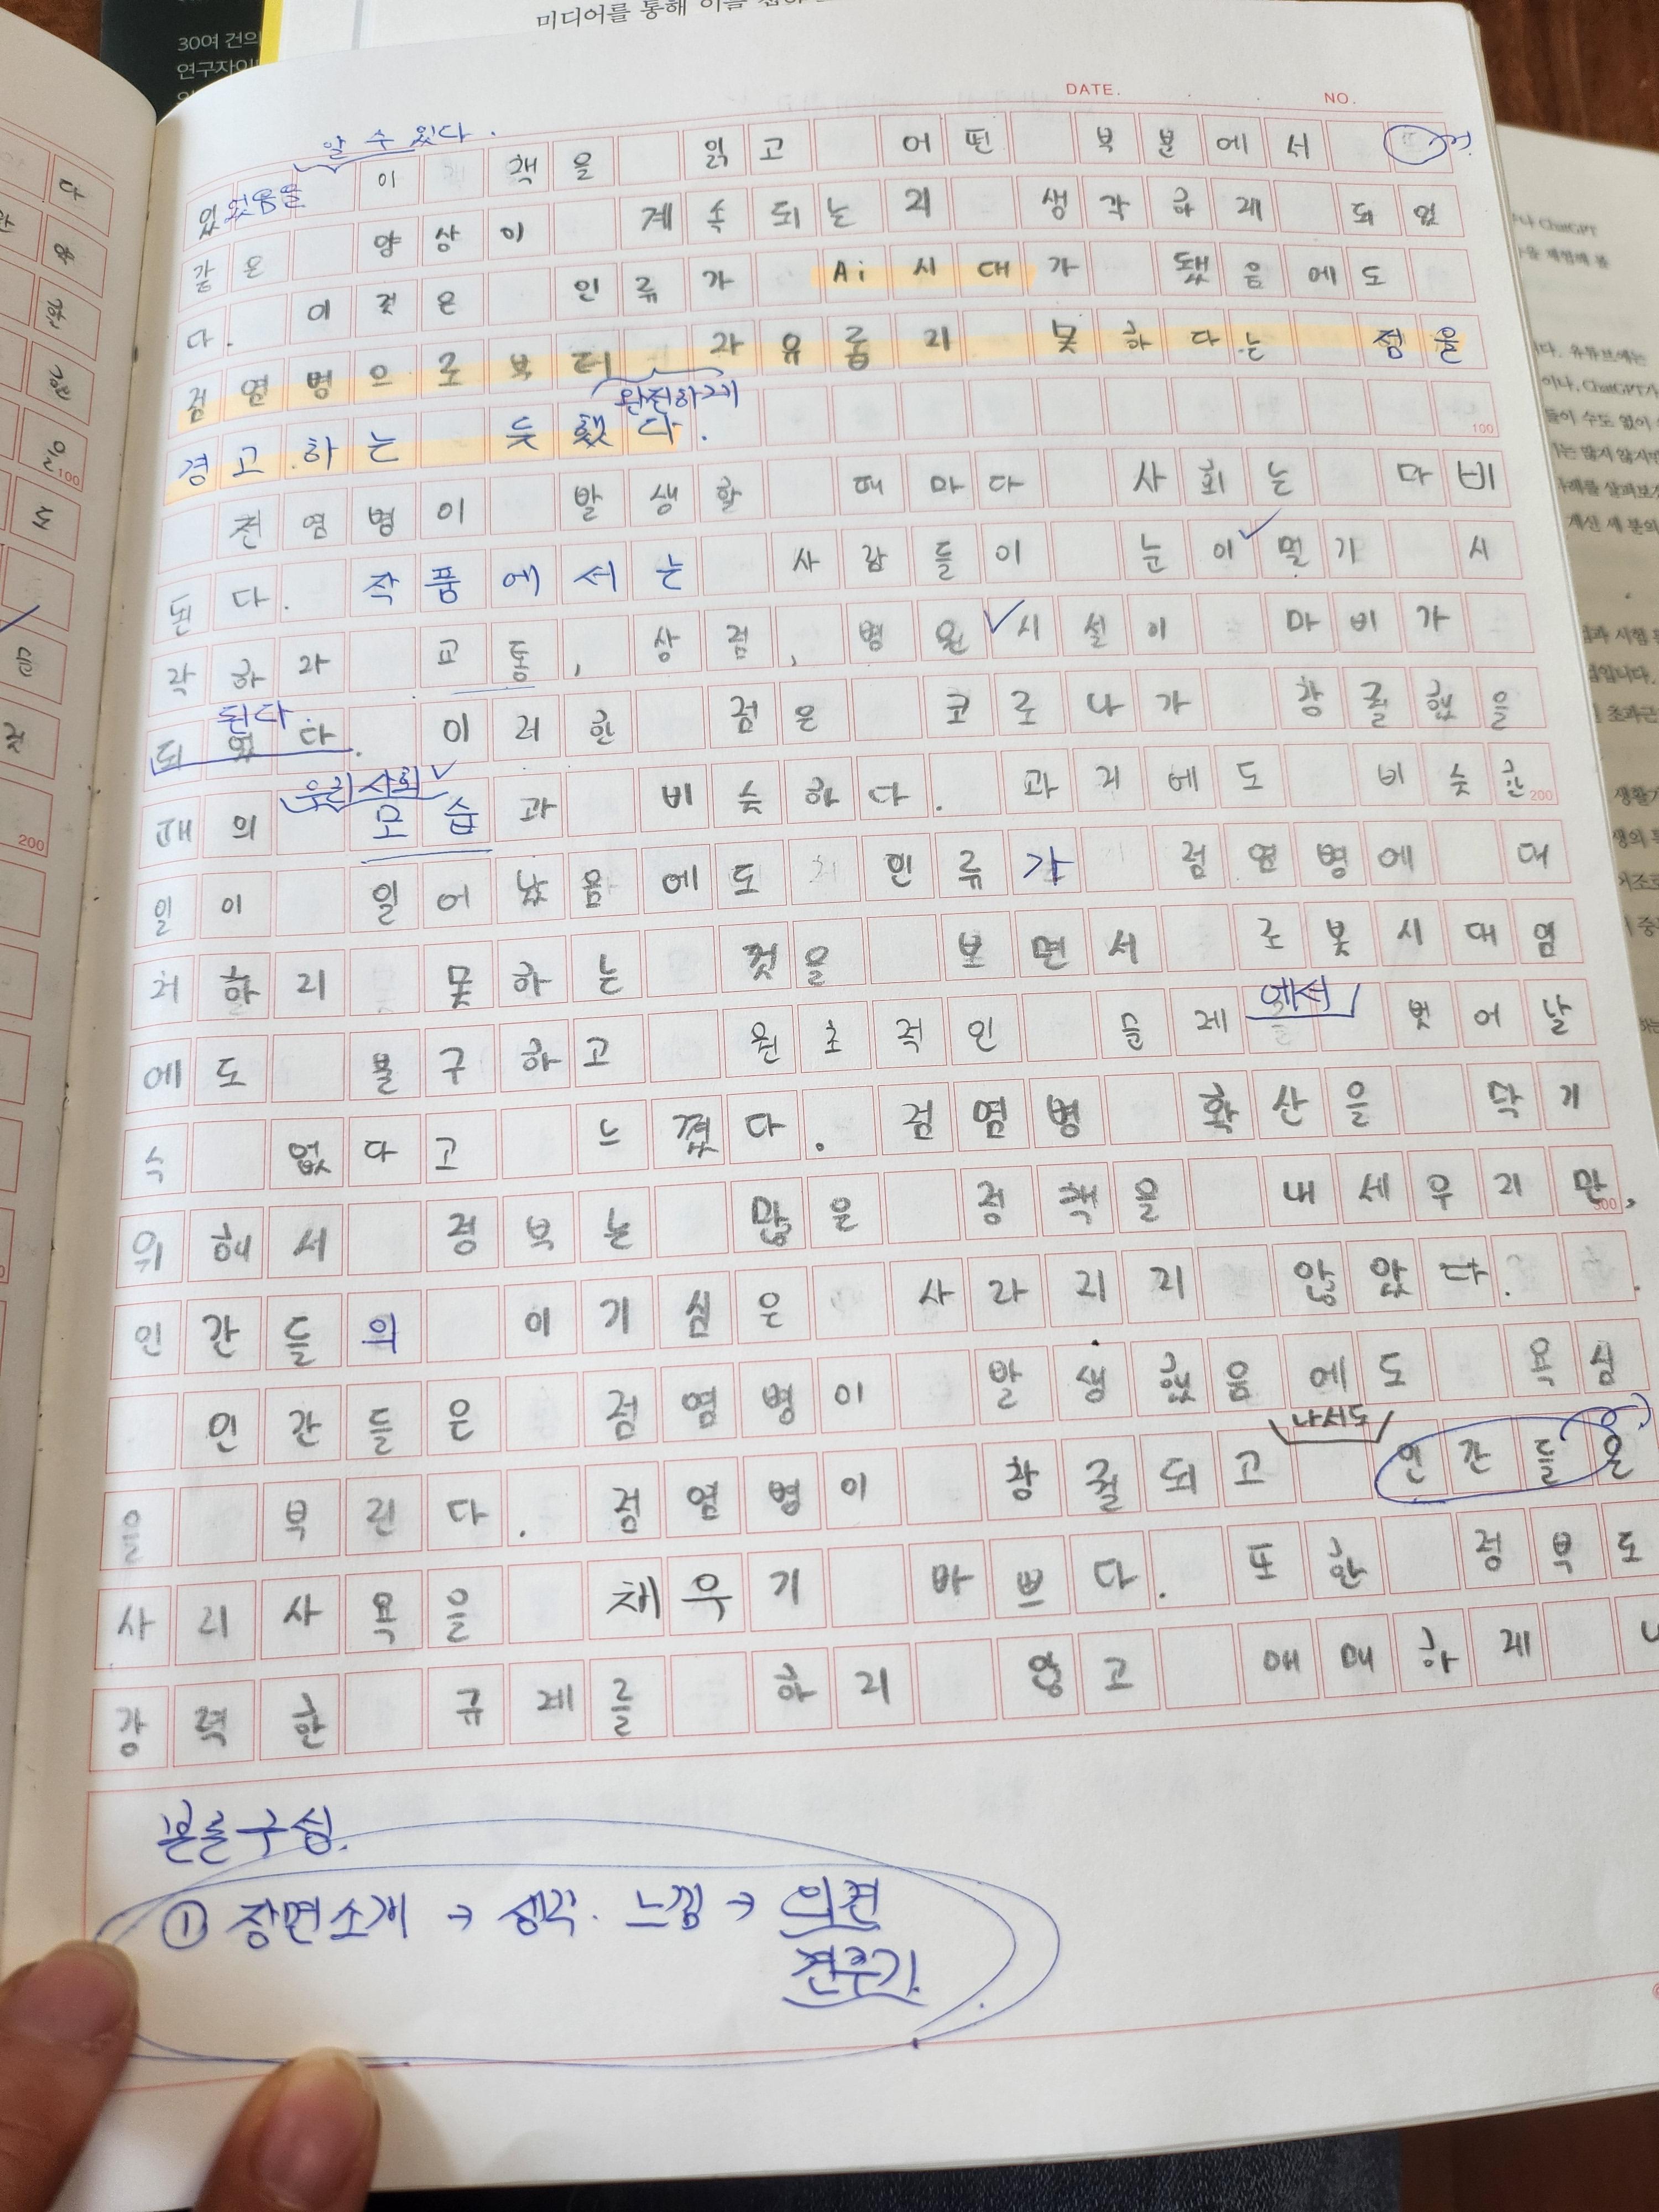 미디어를 통해
30여 건의
연구자이
DATE.
NO.
알 수 있다.
있었음을 이 책을 읽고 어떤 부분에서
같은 양상이 계속되는지 생각하게 되었
다. 이것은 인류가 Ai시대가 됐음에도
점염병으로부터 자유롭지 못하다는 점을
완전하게
경고하는 듯했다.
100
전염병이 발생할 때마다 사회는 마비
된다. 작품에서는 사람들이 눈이 멀기 시
작하자 교통, 상점, 병원 시설이 마비가
된다.
되었다. 이러한 점은 코로나가 창궐했을
우리 사회
때의 모습과 비슷하다. 과거에도 비슷한
200
일이 일어났음에도 인류가 점염병에 대
처하지 못하는 것을 보면서 로봇시대임
에서
에도 불구하고 원초적인 문제 벗어날
수 없다고 느꼈다. 점염병 확산을 막기
위해서 정부는 많은 정책을 내세우지만,
300
인간들의 이기심은 사라지지 않았다.
인간들은 점염병이 발생했음에도 욕심
나서도
을 부린다. 점염병이 창궐되고 인간들은
사리사욕을 채우기 바쁘다. 또한 정부도
강력한 규제를 하지 않고 애매하게
본론구성.
① 장면소개 → 생각. 느낌 → 의견
견주기.
ChatGPT
유튜브에는
이나, ChatGPT가
들이 수도 없이